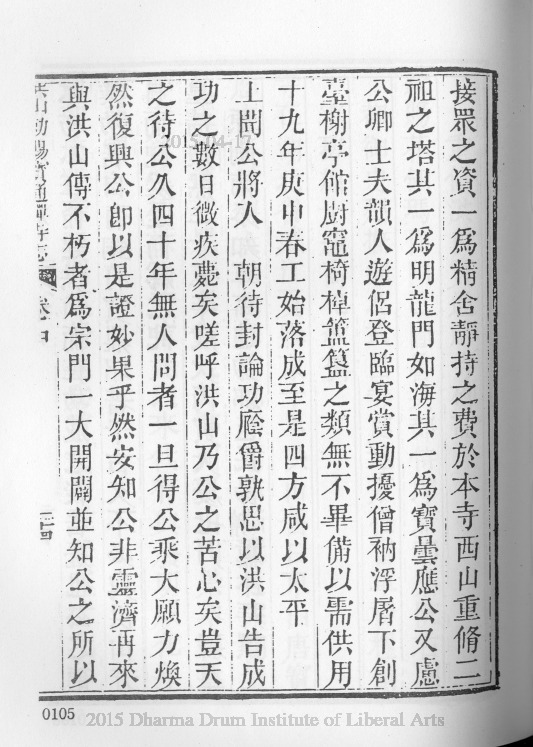 接眾之資一爲精舍靜持之費於本寺西山重脩二
祖之塔其一爲明龍門如海其一爲寶曇應公又慮
公卿士夫韻人遊侶登臨宴賞動擾僧衲浮屠下創
臺榭亭館廚竈椅棹籃簋之類無不畢備以需供用
十九年庚申春工始落成至是四方咸以太平
上聞公將入 朝待封論功廕爵孰思以洪山告成
功之數日微疾薨矣嗟呼洪山乃公之苦心矣豈天
之待公久四十年無人問者一旦得公乘大願力煥
然復興公卽以是證妙果乎然安知公非靈濟再來
與洪山傳不朽者爲宗門一大開闢並知公之所以
洪山勅賜寶通禪寺志 卷十 三十四
2015-04-17
0105 2015 Dharma Drum Institute of Liberal Arts